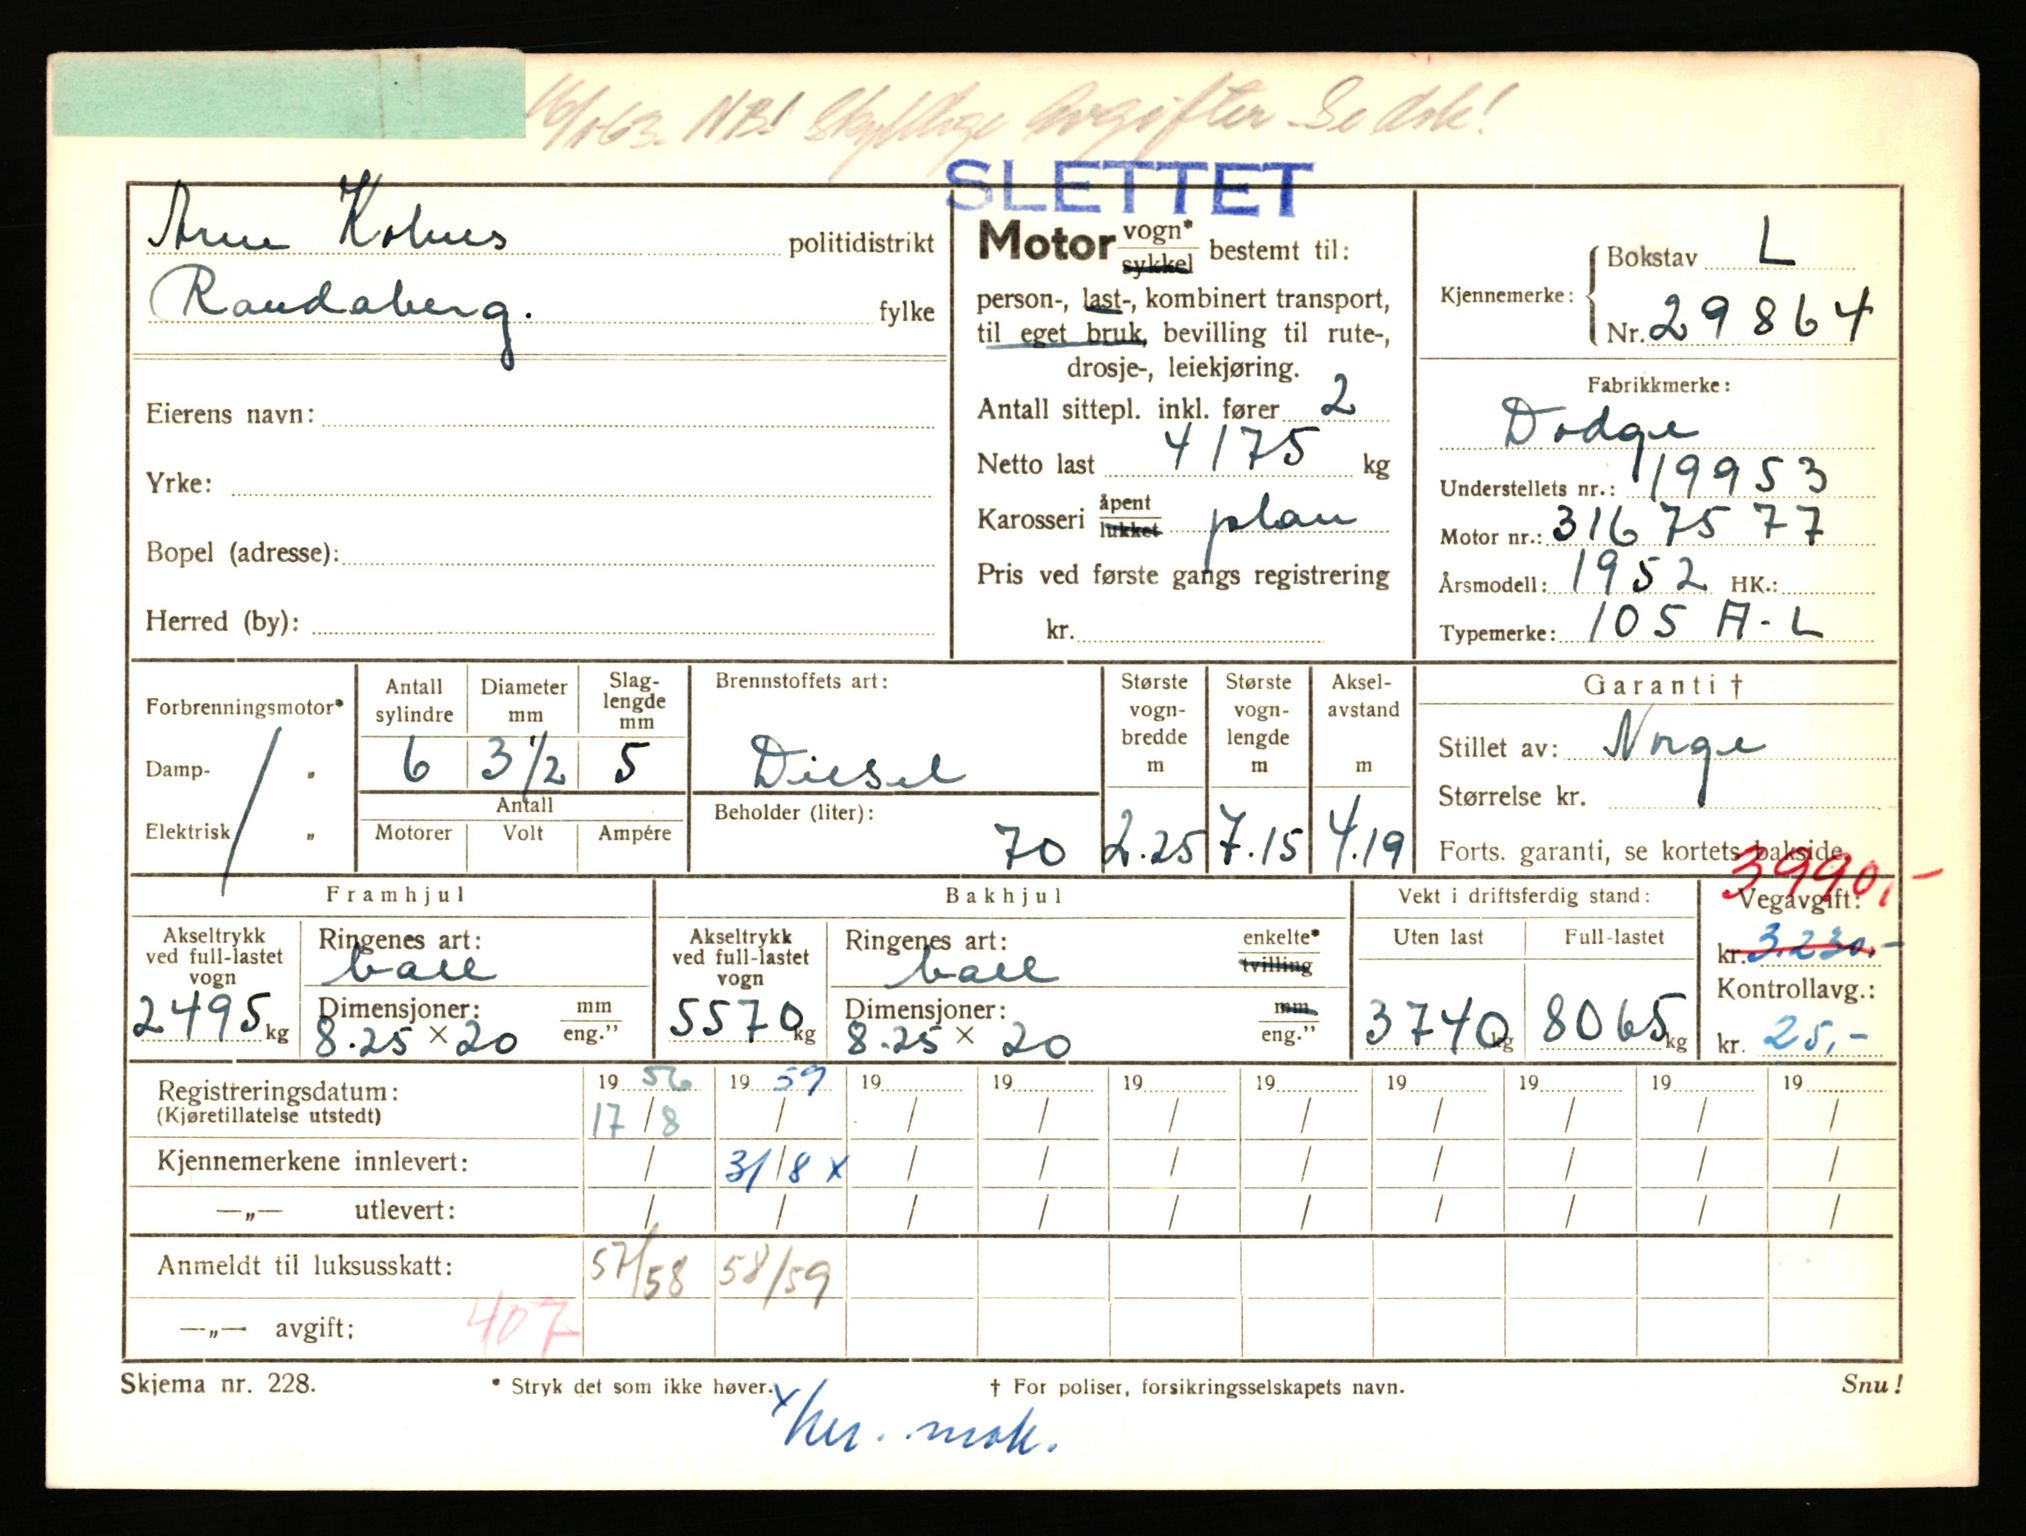 16/1-63. NB! Skyldige avgifter Se dok!
SLETTET
Arne Kolnes politidistrikt
Randaberg. fylke
Eierens navn:
Yrke:
Bopel (adresse):
Herred (by):
Motor vogn* sykkel bestemt til:
person-, last-, kombinert transport,
til eget bruk, bevilling til rute-,
drosje-, leiekjøring.
Antall sittepl. inkl. fører 2
Netto last 4175 kg
Karosseri åpent lukket plan
Pris ved første gangs registrering
kr.
Kjennemerke: Bokstav L
Nr. 29864
Fabrikkmerke:
Dodge
Understellets nr.: 119953
Motor nr.: 3167577
Årsmodell: 1952 HK.:
Typemerke: 105 A-L
Forbrenningsmotor*
Damp- "
Elektrisk "
Antall sylindre 6
Diameter mm 3 1/2
Slag-lengde mm 5
Antall
Motorer Volt Ampére
Brennstoffets art:
Diesel
Beholder (liter):
70
Største vogn-bredde m 2.25
Største vogn-lengde m 7.15
Aksel-avstand m 4.19
Garanti †
Stillet av: Norge
Størrelse kr.
Forts. garanti, se kortets bakside
Framhjul
Akseltrykk ved full-lastet vogn 2495 kg
Ringenes art: ball
Dimensjoner: mm eng."
8.25 × 20
Bakhjul
Akseltrykk ved full-lastet vogn 5570 kg
Ringenes art: enkelte* tvilling
ball
Dimensjoner: mm eng."
8.25 × 20
Vekt i driftsferdig stand:
Uten last Full-lastet
3740 kg 8065 kg
3990,-
Vegavgift:
kr. 3.230.-
Kontrollavg.:
kr. 25,-
Registreringsdatum: 19 56 19 59 19 19 19 19 19 19 19 19
(Kjøretillatelse utstedt) 17/8 / / / / / / / / /
Kjennemerkene innlevert: / 31/8 x / / / / / / / /
—„— utlevert: / / / / / / / / / /
Anmeldt til luksusskatt: 57/58 58/59
—„— avgift: 407
Skjema nr. 228. * Stryk det som ikke høver. † For poliser, forsikringsselskapets navn. Snu!
x/ mok.